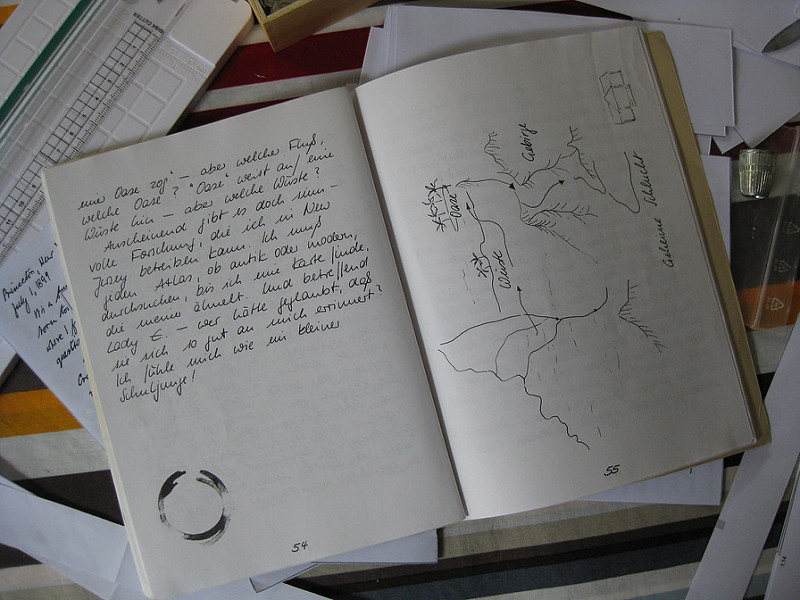 einer Oase zog" – aber welcher Fluß,
welche Oase? "Oase" weist auf eine
Wüste hin – aber welche Wüste?
Anscheinend gibt es doch sinn-
volle Forschung, die ich in New
Jersey betreiben kann. Ich muß
jeden Atlas, ob antik oder modern,
durchsuchen, bis ich eine Karte finde,
die meiner ähnelt. Und betreffend
Lady E. – wer hätte geglaubt, daß
sie sich so gut an mich erinnert?
Ich fühle mich wie ein kleiner
Schuljunge!
54
Gebirge
Oase
Wüste
Geheime Schlucht
55
Princeton, New
July 1, 1899